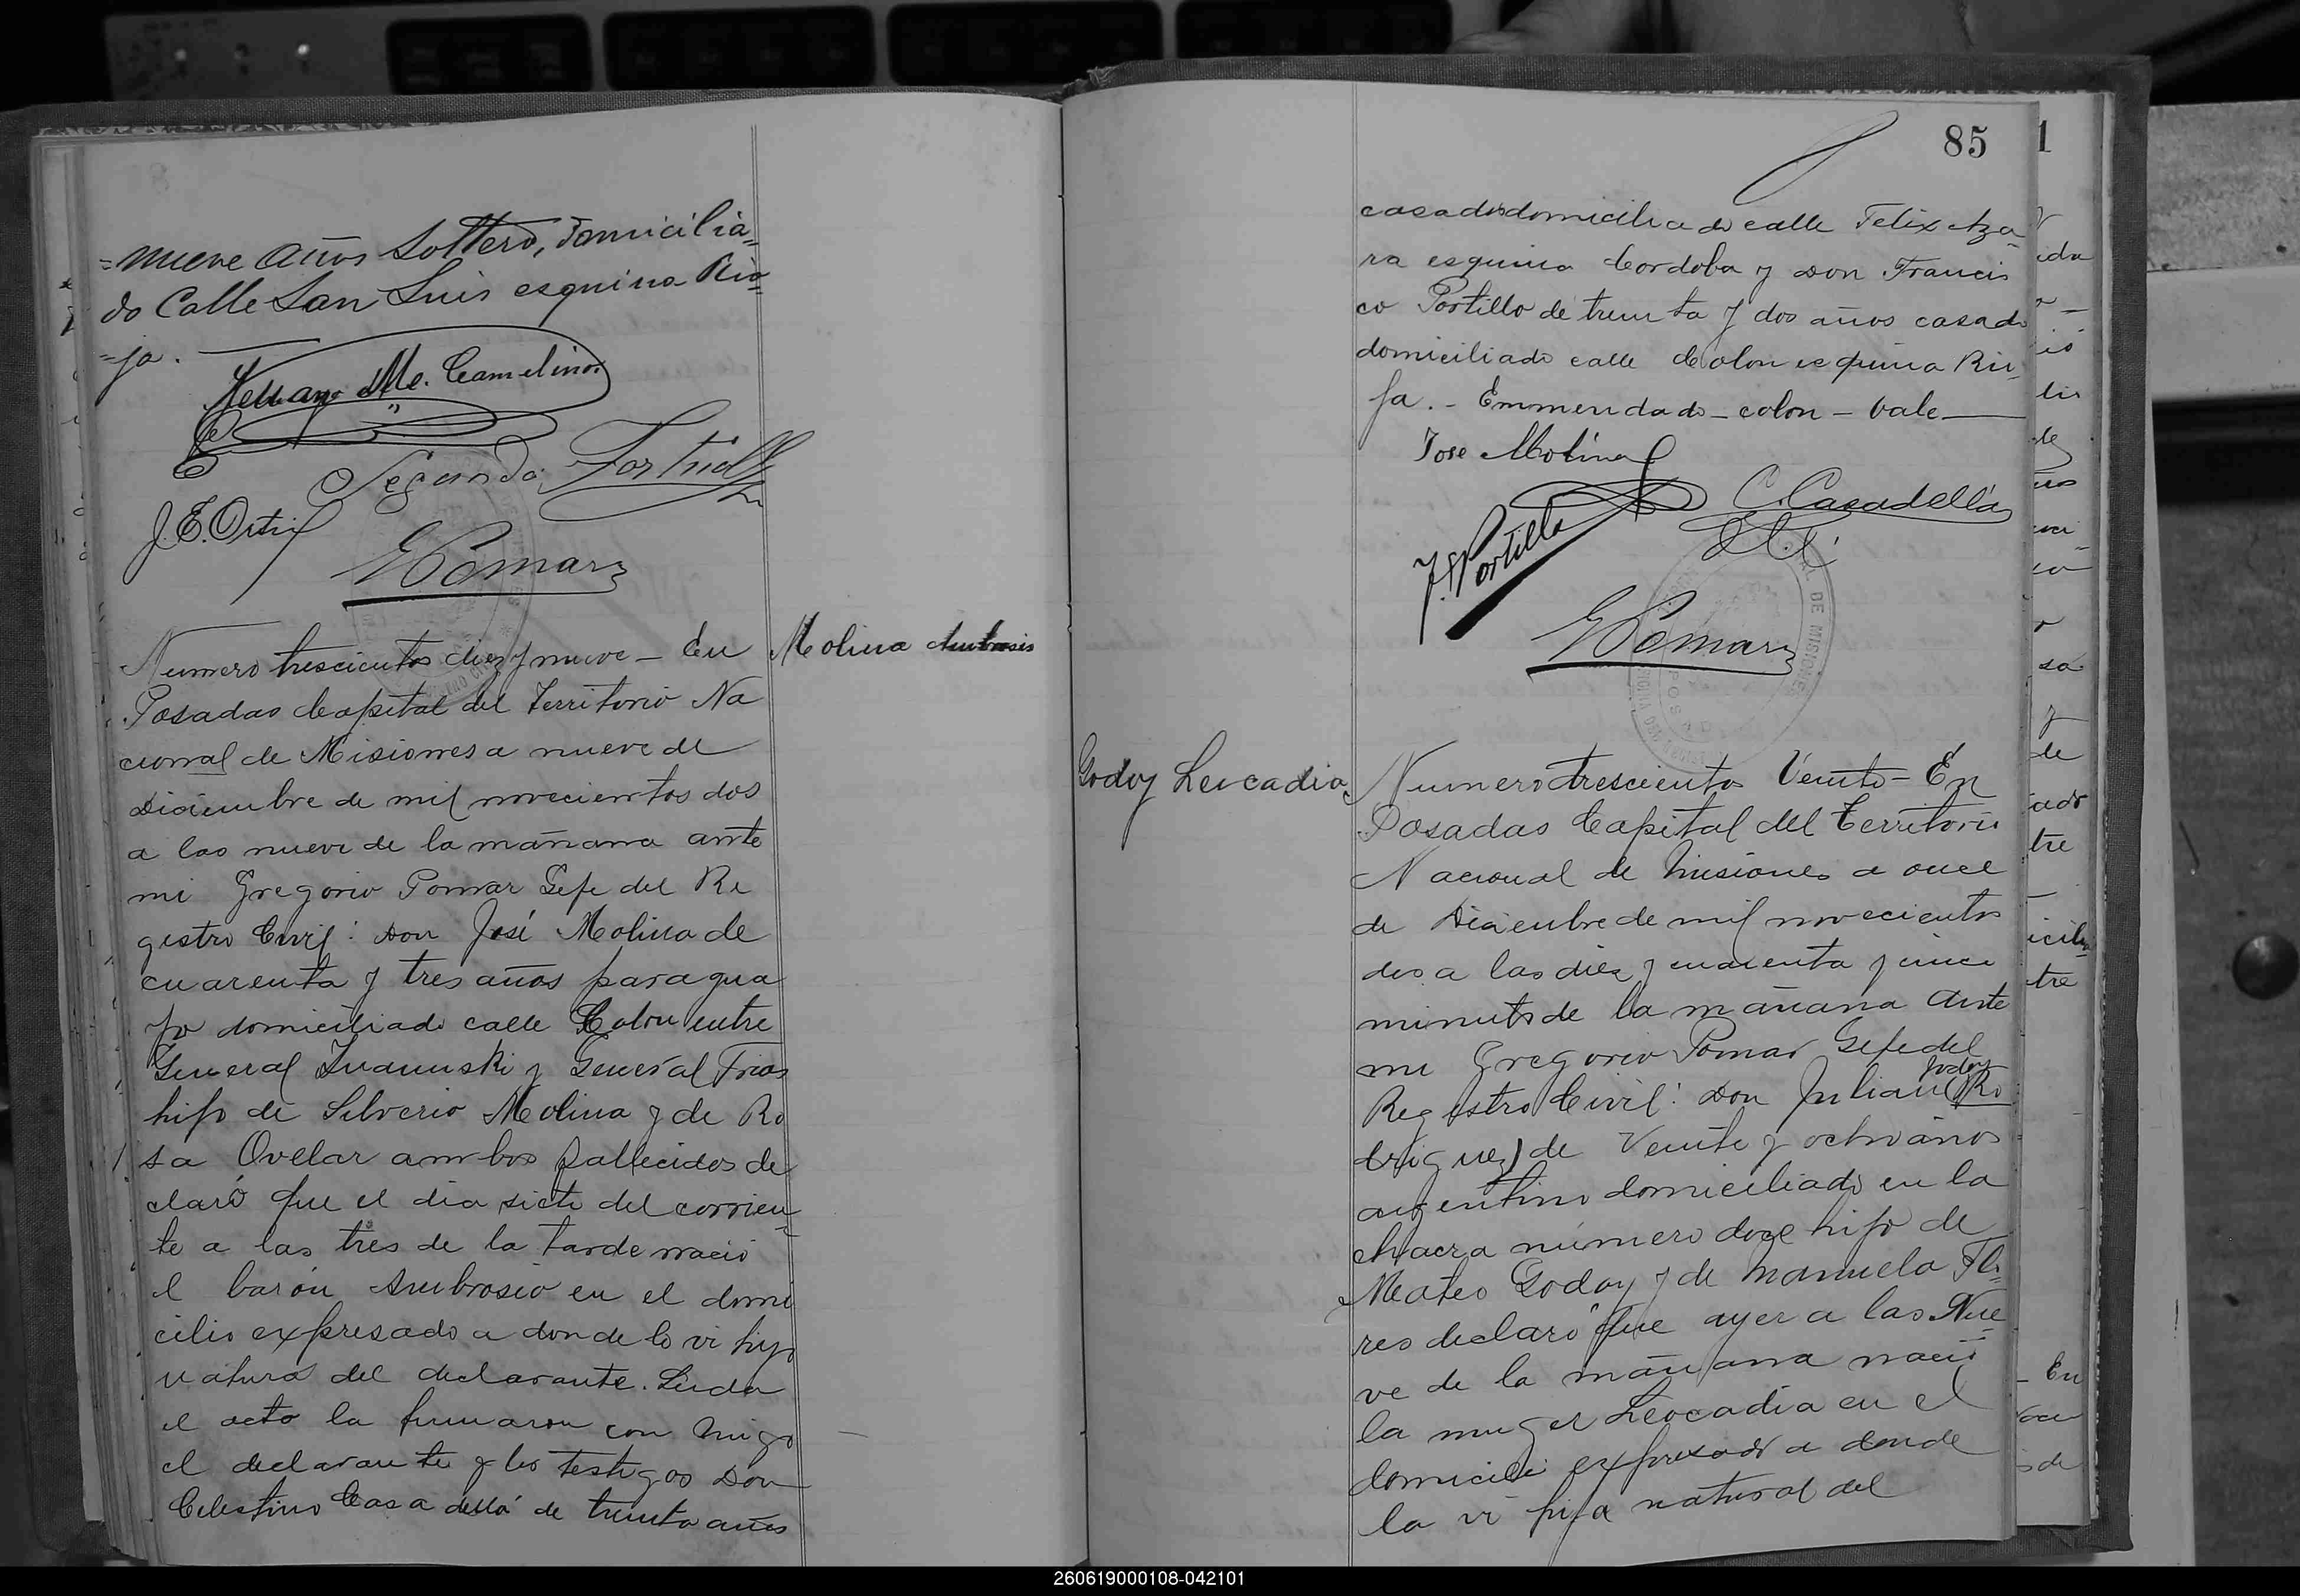 =nueve años soltero, domicilia=
do Calle San Luis esquina Rio=
=ja.
Camelino
Segundo
J.E. Ortiz
GPomar
Numero trescientos diez y nueve - En
Molina Ambrosio
Posadas Capital del Territorio Na
cional de Misiones a nueve de
Diciembre de mil novecientos dos
a las nueve de la mañana ante
mi Gregorio Pomar Gefe del Re
gistro Civil: Don José Molina de
cuarenta y tres años paragua
yo domiciliado calle Colon entre
General y General Frias
hijo de Silverio Molina y de Ro
sa Ovelar ambos fallecidos de
claró que el dia siete del corrien=
te a las tres de la tarde nació
el barón Ambrosio en el domi
cilio expresado a donde lo vi hijo
natural del declarante. Leida
el acta la firmaron con migo
el declarante y los testigos Don
Celestino Casadellá de treinta años
85
casado domiciliado calle Felix Aza=
ra esquina Cordoba y Don Francis
co Portillo de treinta y dos años casado
domiciliado calle Colon esquina Rio=
ja. - Enmendado - colon - Vale
Jose Molina
C. Casadellá
F. Portillo
GPomar
DE MISIONES
Godoy Leocadia
Numero trescientos Veinte - En
Posadas Capital del Territorio
Nacional de Misiones a once
de Diciembre de mil novecientos
dos a las diez y cuarenta y cinco
minutos de la mañana Ante
mi Gregorio Pomar Gefe del
Godoy
Registro Civil: Don Julian (Ro
driguez) de Veinte y ocho años
argentino domiciliado en la
chacra número doce hijo de
Mateo Godoy y de Manuela Flo=
res declaró que ayer a las Nue=
ve de la mañana nació
la muger Leocadia en el
domicilio expresado a donde
la vi hija natural del
260619000108-042101